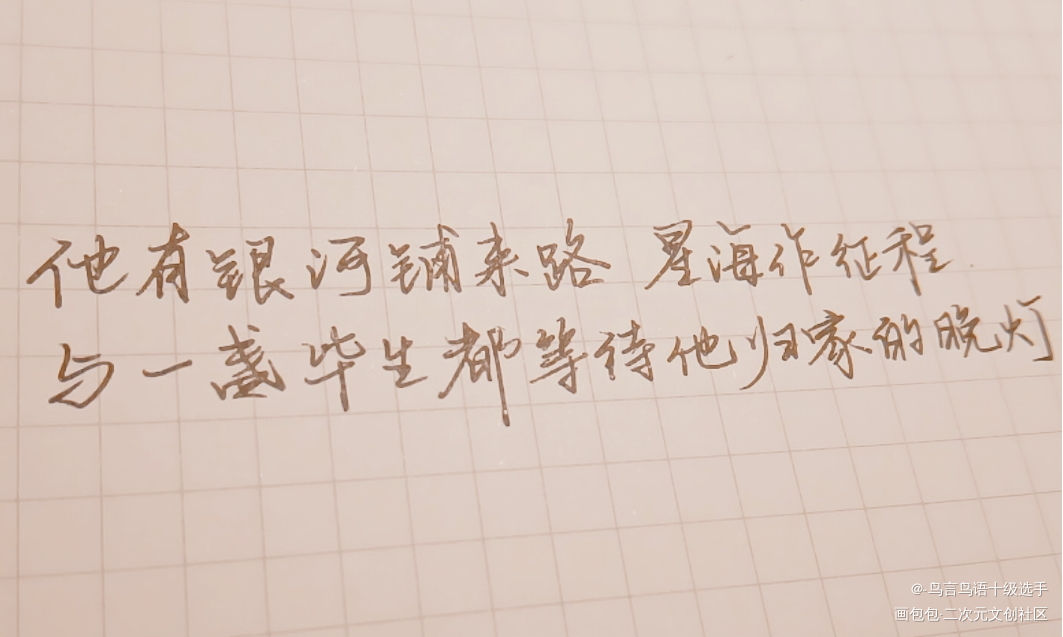 他有银河铺来路 星海作征程
与一盏毕生都等待他归家的晚灯
@-鸟言鸟语十级选手
画包包·二次元文创社区